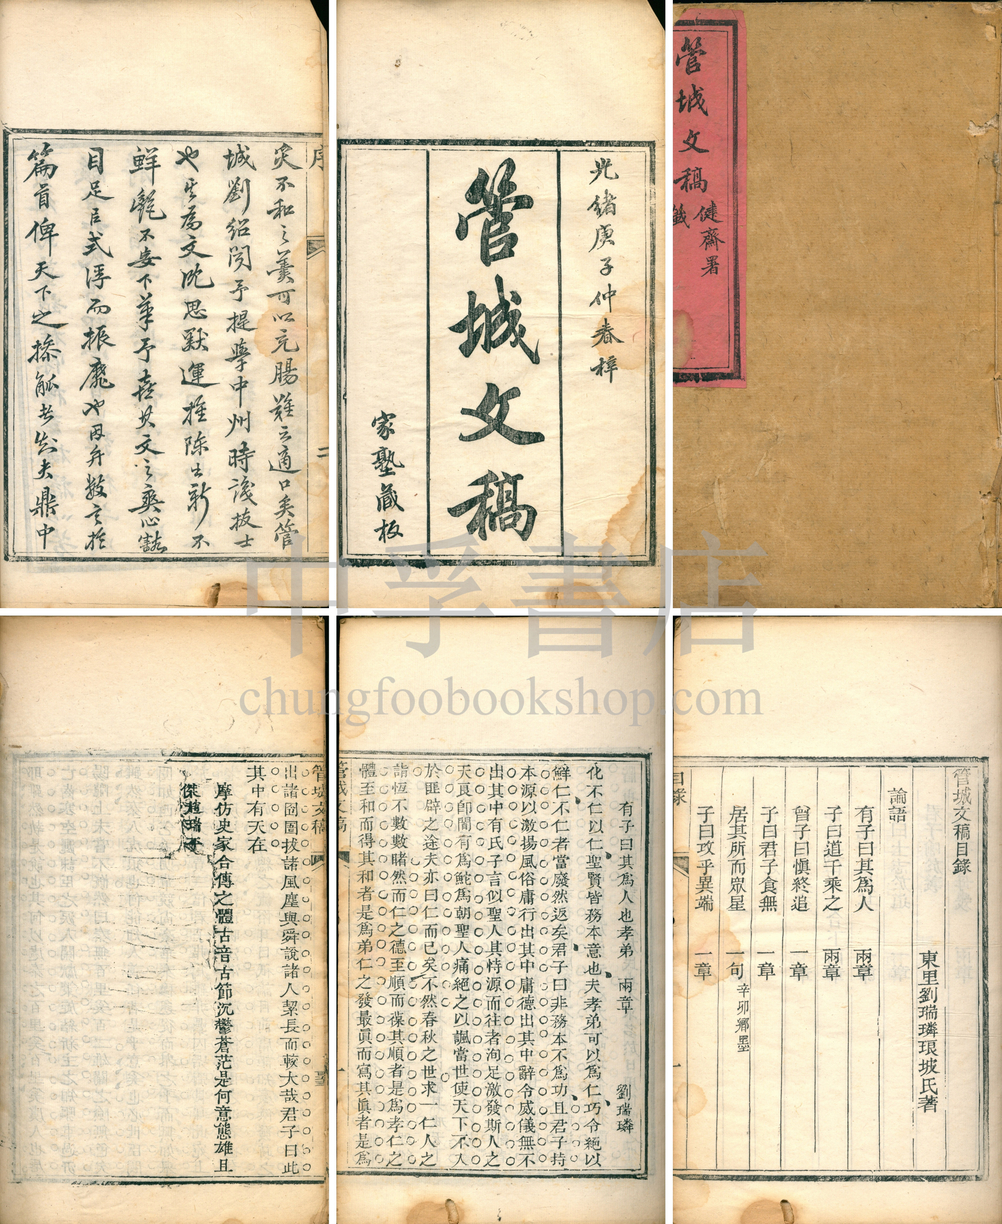 管城文稿
健齋署
籤
光緒庚子仲春梓
管城文稿
家塾藏板
序
炙不和之羹可以充腸難云適口矣管
城劉紹閔予提學中州時識拔士
也其為文沈思默運推陳出新不
鮮艷不妄下筆予喜其文之爽心豁
目足以式浮而振靡也因弁數言於
篇首俾天下之操觚者知夫鼎中
二
中孚書店
chungfoobookshop.com
管城文稿目錄
東里劉瑞璘琅坡氏著
論語
有子曰其為人 兩章
子曰道千乘之 兩章
曾子曰慎終追 一章
子曰君子食無 一章
居其所而眾星 一句 辛卯鄉墨
子曰攻乎異端 一章
目錄
一
有子曰其為人也孝弟 兩章 劉瑞璘
化不仁以仁聖賢皆務本意也夫孝弟可以為仁巧令絕以
鮮仁不仁者當廢然返矣君子曰非務本不為功且君子持
本源以激揚風俗庸行出其中庸德出其中辭令威儀無不
出其中有氏子言似聖人其恃源而往者洵足激發斯人之
天良卽間有為鮀為朝聖人痛絕之以諷當世使天下不入
於匪辟之途夫亦曰仁而已矣不然春秋之世求一仁人之
詣恆不數數睹然而仁之德至順而葆其順者是為孝仁之
體至和而得其和者是為弟仁之發最眞而寫其眞者是為
管城文稿
一
管城文稿
出諸囹圄拔諸風塵與舜說諸人絜長而較大哉君子曰此
其中有天在
摩仿史家合傳之體古音古節沉鬱蒼茫是何意態雄且
傑趙瑞亭